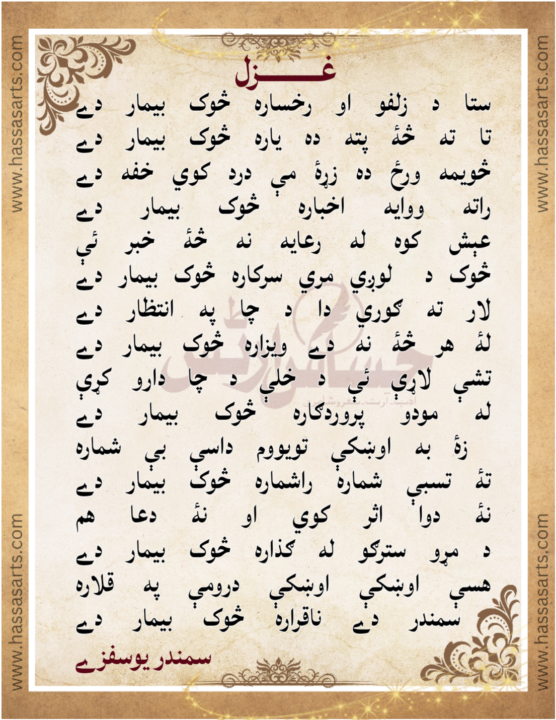 غــــزل
ستا د زلفو او رخساره څوک بیمار دے
تا ته څهٔ پته ده یاره څوک بیمار دے
څویمه ورځ ده زړهٔ مې درد کوي خفه دے
راته ووایه اخباره څوک بیمار دے
عېش کوه له رعایه نه څهٔ خبر ئې
څوک د لوږې مري سرکاره څوک بیمار دے
لار ته ګوري دا د چا په انتظار دے
لهٔ هر څهٔ نه دے ویزاره څوک بیمار دے
تشې لارې ئې د خلې د چا دارو کړې
له مودو پروردګاره څوک بیمار دے
زهٔ به اوښکې تویووم داسې بې شماره
تهٔ تسبې شماره راشماره څوک بیمار دے
نهٔ دوا اثر کوي او نهٔ دعا هم
د مړو سترګو له ګذاره څوک بیمار دے
هسې اوښکې اوښکې درومې په قلاره
سمندر دے ناقراره څوک بیمار دے
سمندر یوسفزے
www.hassasarts.com
www.hassasarts.com
www.hassasarts.com
www.hassasarts.com
حساس آرٹس